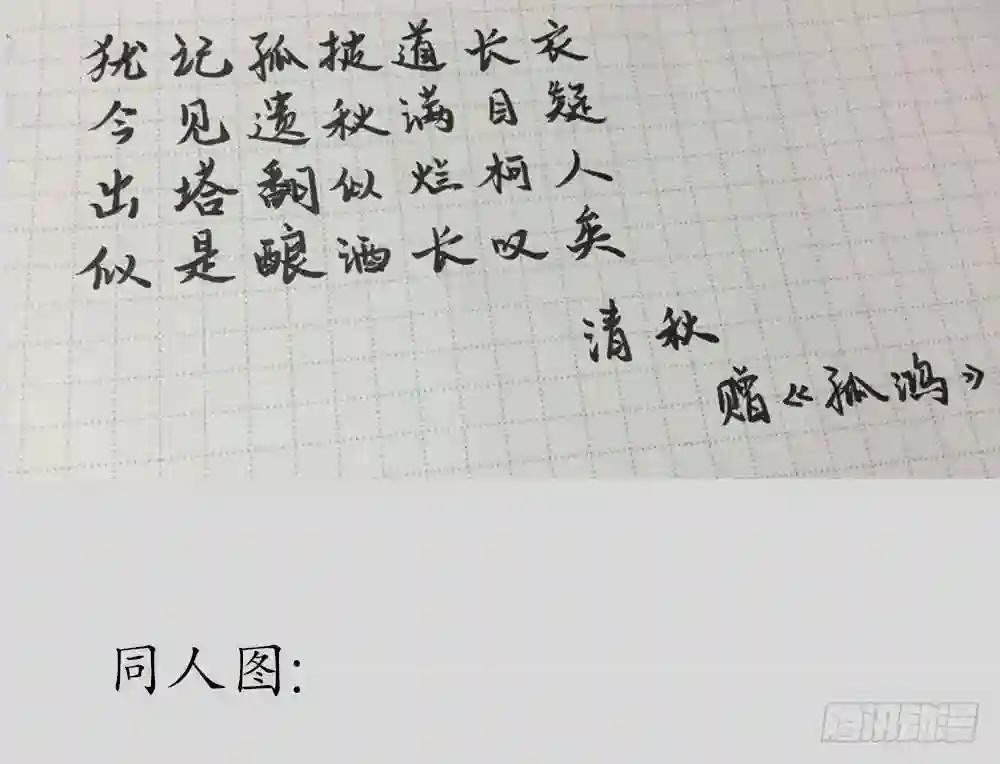 犹记孤披道长衣
今见遗秋满目疑
出塔翻似烂柯人
似是酿酒长叹矣
清秋
赠《孤鸿》
同人图:
腾讯动漫